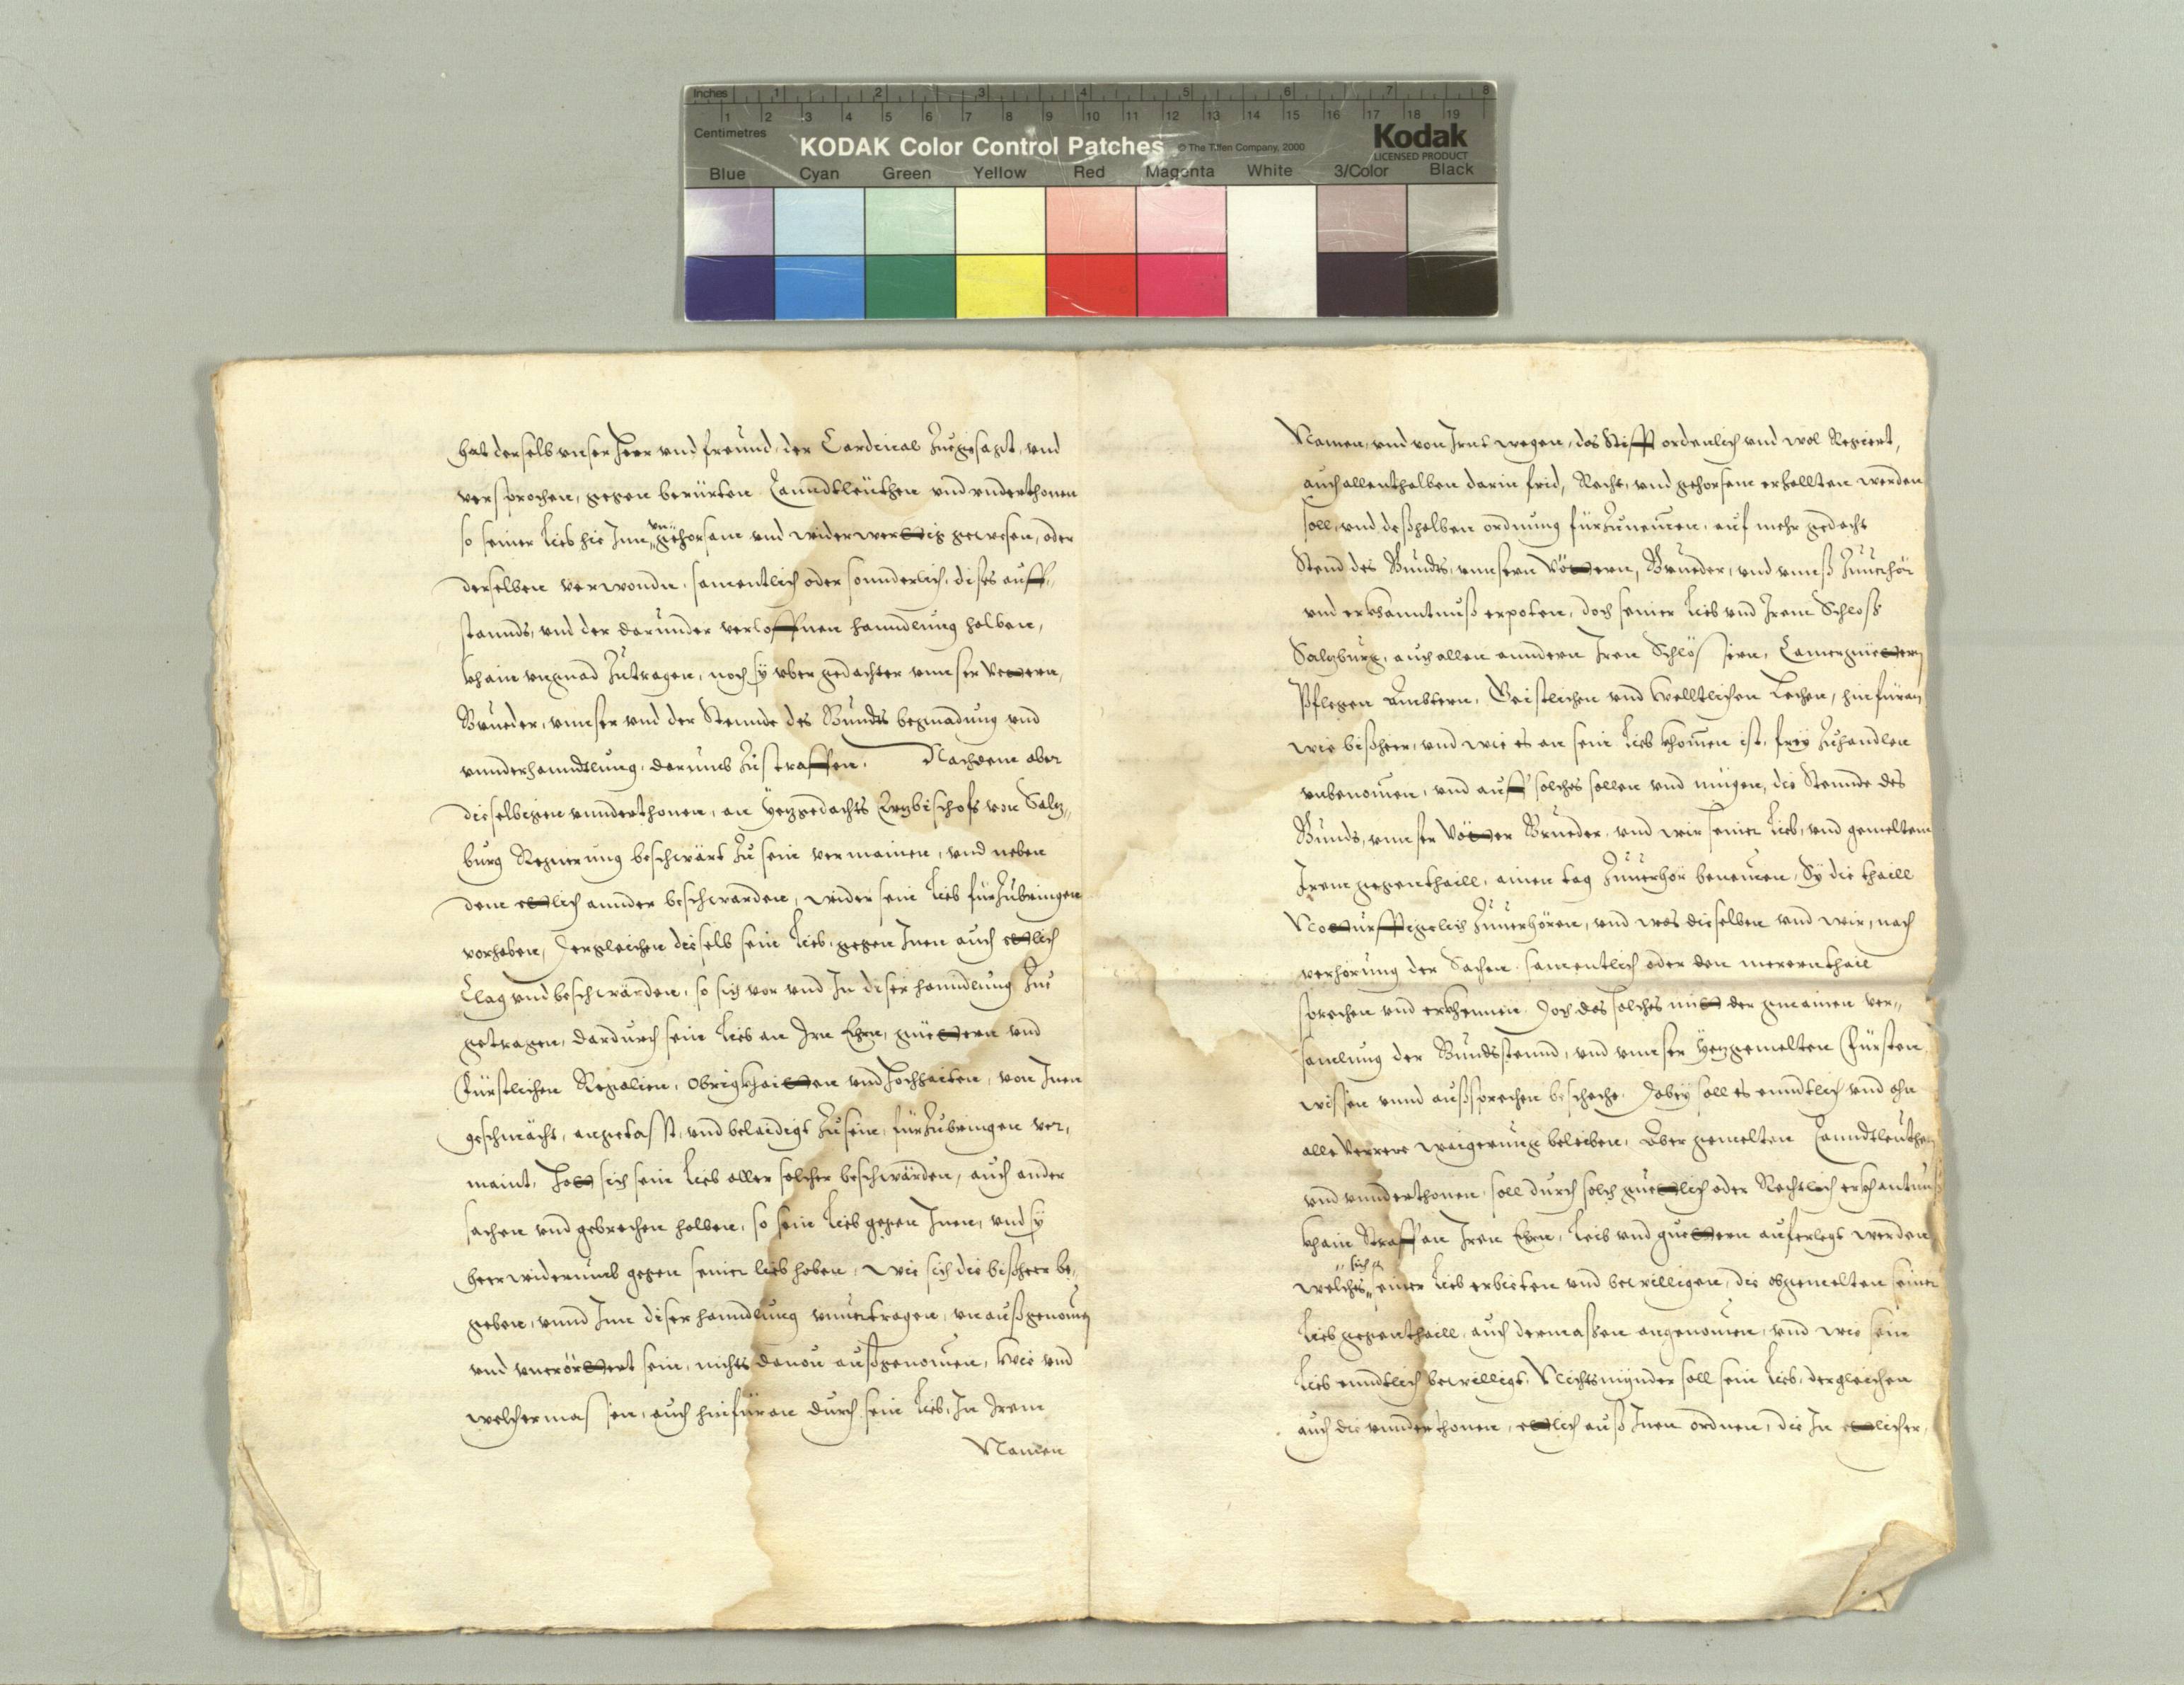 Inches 1 2 3 4 5 6 7 8
1 2 3 4 5 6 7 8 9 10 11 12 13 14 15 16 17 18 19
Centimetres
KODAK Color Control Patches © The Tiffen Company, 2000 Kodak
LICENSED PRODUCT
Blue Cyan Green Yellow Red Magenta White 3/Color Black
hat derselb vnser Herr vnd freund, der Cardinal Zuegesagt, vnd
versprochen, gegen berürten Lanndtleüthen vnd vnderthonen
so seiner lieb hie Inn vngehorsam vnd widerwerttig gewesen, oder
derselben verwondn, samentlich oder sonnderlich, dises auff„
stannds, vnd der darunder verloffnen hanndlung halben,
khain vngnad Zutragen, noch sÿ vber gedachter vnnser Vettern,
Brueder, vnnser vnd der Stennde des Bundts begnadung vnd
vnnderhanndtlung, darumb Zustraffen. Nachdem aber
dieselbigen vnnderthonen, an Yetzgedachts Ertzbischofs von Saltz„
burg Regierung beschwärt Zu sein vermainen, vnd neben
dem ettlich annder beschwarden, wider sein lieb fürZubringen
vorhaben, Dergleichen dieselb sein lieb, gegen Inen auch ettlich
Clag vnd beschwärden, so sich vor vnd In diser hanndlung Zue
getragen, dardurch sein lieb an Irn Ehrn, güettern vnd
Fürstlichen Regalien, Obrigkhaitten vnd Hochhaiten, von Inen
geschmächt, angetasst, vnd belaidigt Zusein, fürZubringen ver„
maint, Hatt sich sein lieb aller solcher beschwärden, auch ander
sachen vnd gebrechen halben, so sein lieb gegen Inen, vnd sÿ
herwiderumb gegen seiner lieb haben, wie sich die bißheer be„
geben, vnnd Inn diser hanndlung vnuertragen, vnaußgenomen
vnd vnerörttert sein, nichts dauon außgenomen, Wie vnd
welchermassen, auch hinfüran durch sein lieb, In Irem
Namen
Namen, vnd von Irnt wegen, das Stifft ordenlich vnd wol Regiert,
auch allenthalben darin frid, Recht, vnd gehorsam erhallten werden
soll, vnd deßhalben ordnung fürZunemen, auf mehr gedacht
Stend des Bundts, vnnsern Vöttern, Brueder, vnd vnnß Zuuerhör
vnd erkhanntnuß erpoten, doch seiner lieb vnd Irem Schloss
Saltzburg, auch allen anndern Iren Schlössern, Camergüettern
Pflegen Ambtern, Geistlichen vnd Welltlichen Lechen, hinfüran
wie bißheer, vnd wie es an sein lieb khomen ist, frey Zuhandlen
vnbenomen, vnd auff solches sollen vnd mügen, die Stennde des
Bunds, vnnser Vötter Brueder, vnd wir seiner lieb, vnd gemeltem
Irem gegenthaill, ainen tag Zuuerhör benennen, Sÿ die thaill
Notturfftigclich Zuuerhören, vnd was dieselben vnd wir, nach
verhörung der Sachen, samentlich oder den merernthail
sprechen vnd erkhennen, Doch das solches mitt der gmainen ver„
samlung der Bundsstennd, vnd vnnser Yetzgemelten Fürsten,
wissen vnnd außsprechen beschehe, Dabey soll es enndtlich vnd ohn
alle Verrere waigerung beleiben, Aber gemelten Lanndtleüthen
vnd vnnderthonen, soll durch solch güetlich oder Rechtlich erkhantnuß
khain Straff an Iren Ehrn, leib vnd guettern auferlegt werden
welches„ seiner lieb erbieten vnd bewilligen, die obgemelten seiner
lieb gegenthaill, auch dermassen angenomen, vnd wie sein
lieb enndtlich bewilligt, Nichtsmÿnder soll sein lieb, dergleichen
auch die vnnderthonen, ettlich auß Inen ordnen, die In ettlicher,